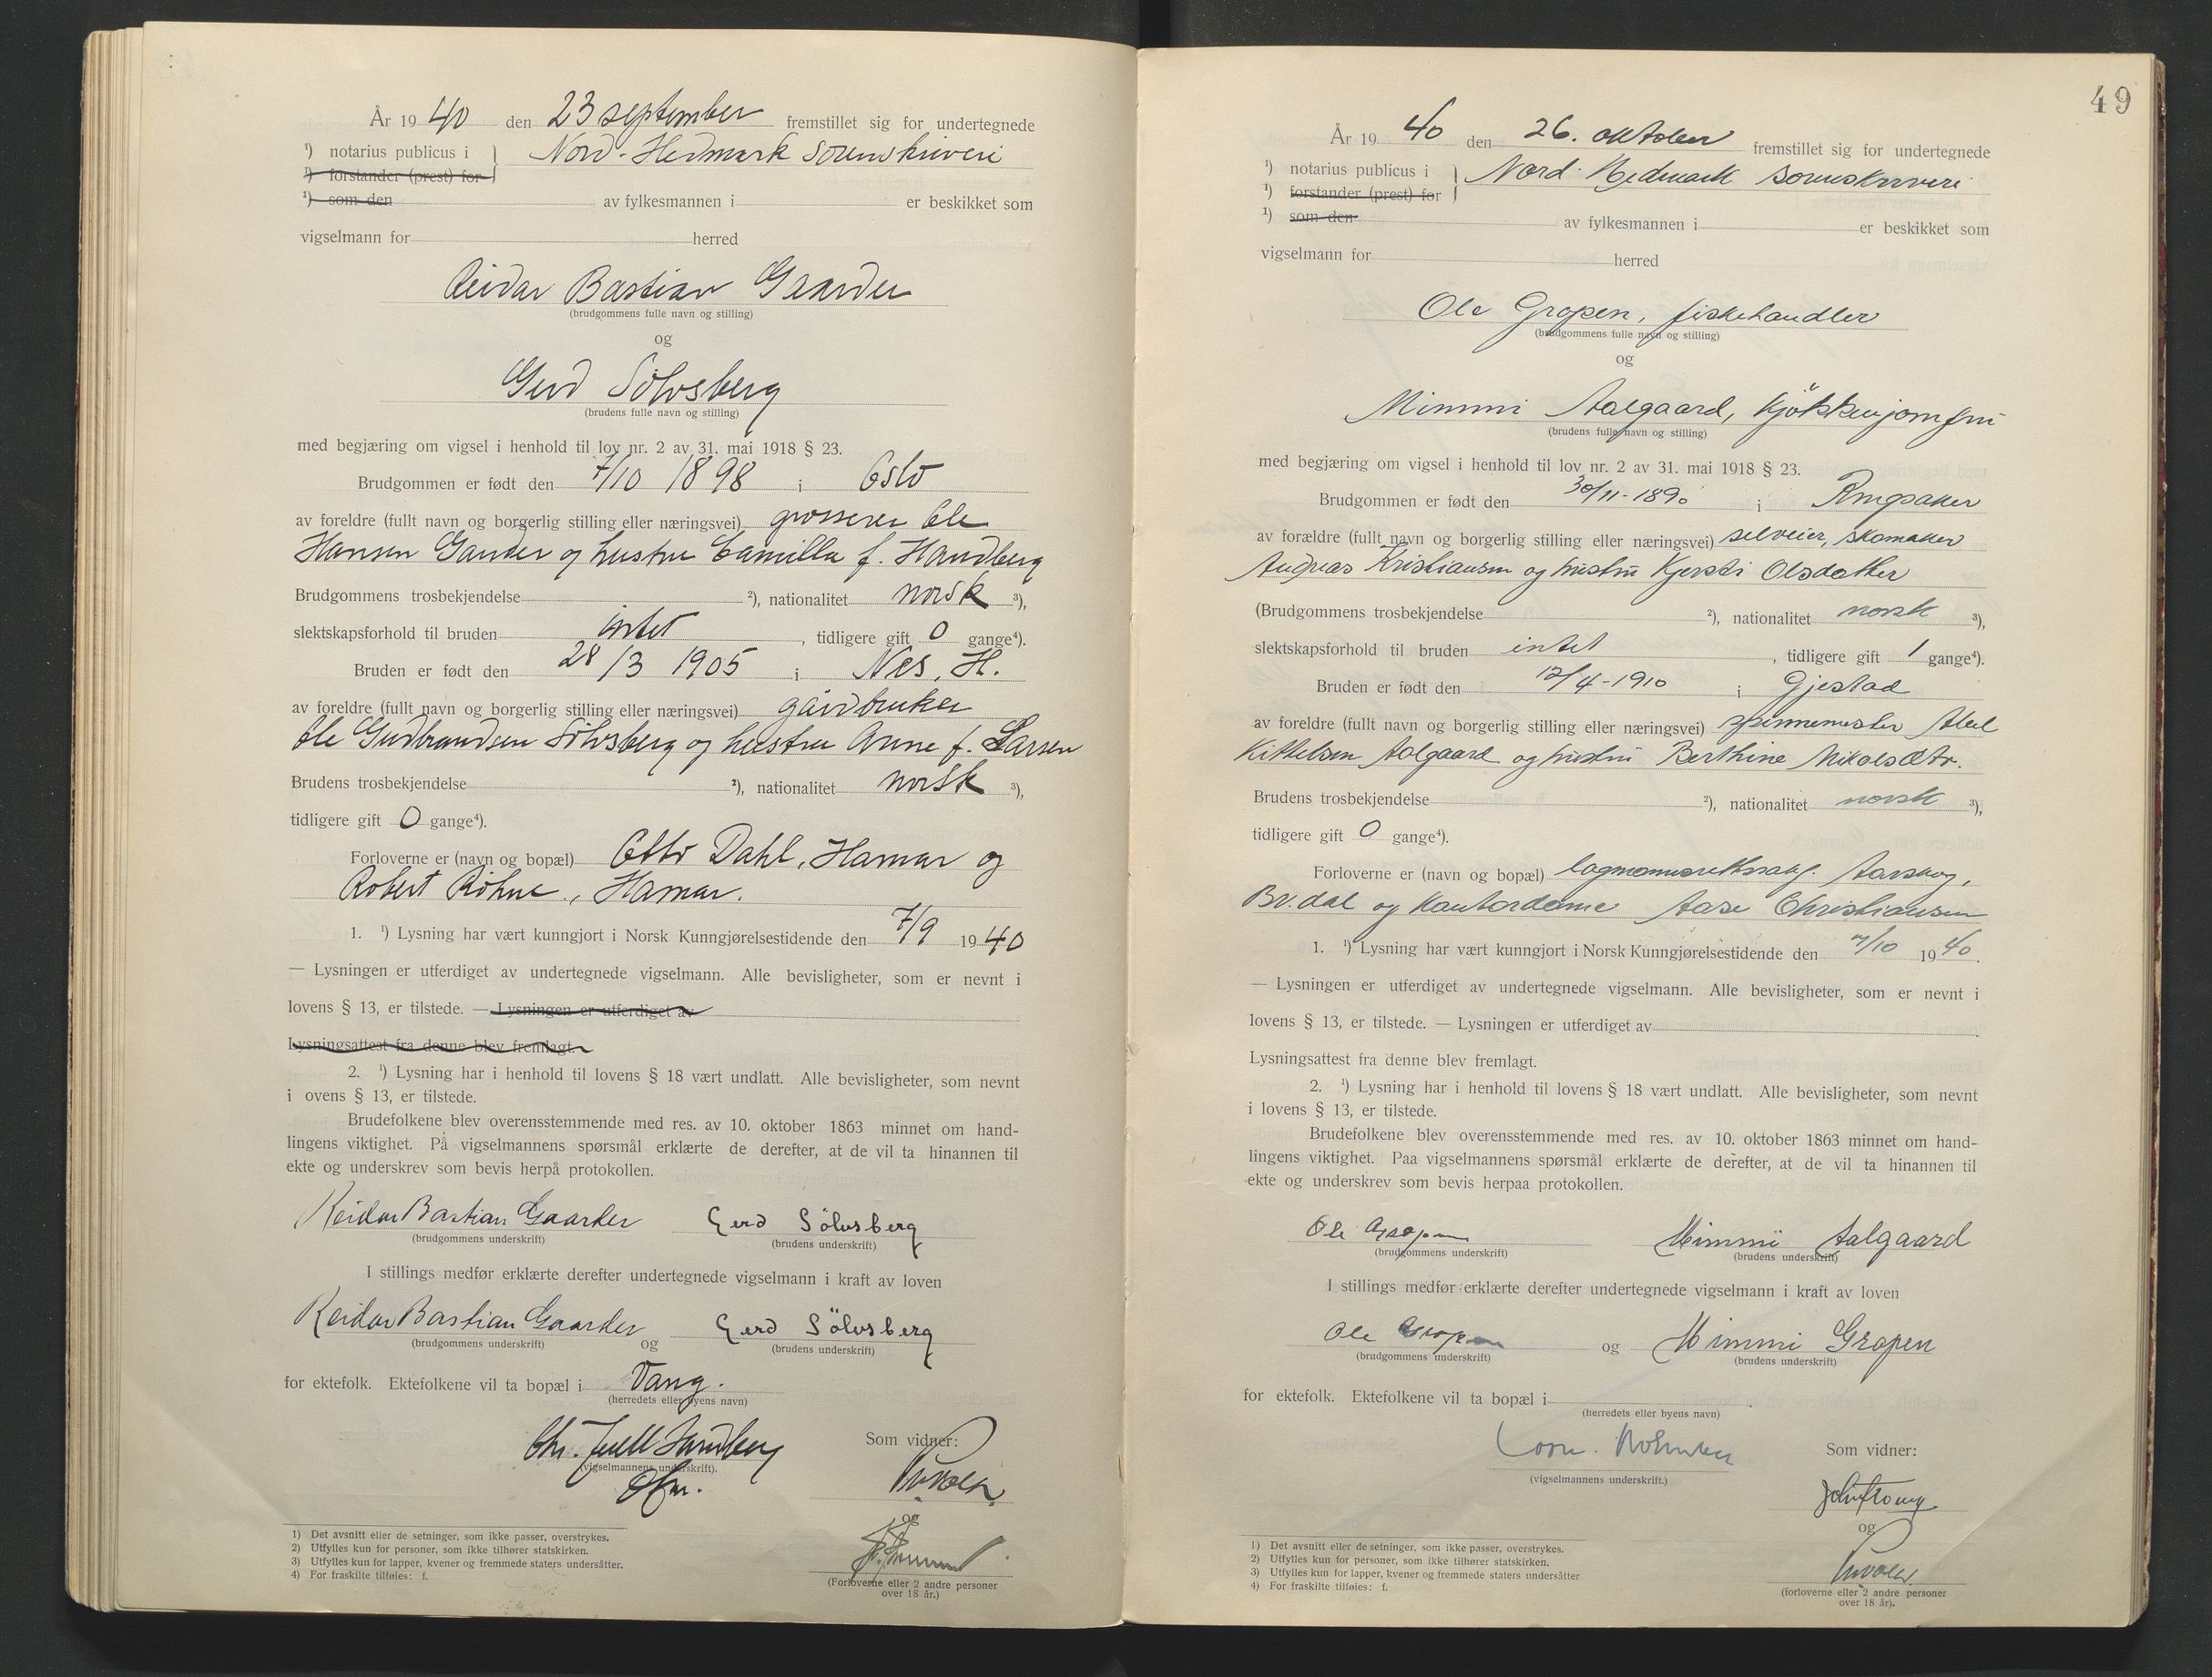 År 1940 den 23 september fremstillet sig for undertegnede
¹) notarius publicus i } Nord-Hedmark sorenskriveri
¹) forstander (prest) for
¹) som den av fylkesmannen i er beskikket som
vigselmann for herred
Reidar Bastian Gaarder
(brudgommens fulle navn og stilling)
og
Gerd Sölvsberg
(brudens fulle navn og stilling)
med begjæring om vigsel i henhold til lov nr. 2 av 31. mai 1918 § 23.
Brudgommen er født den 7/10 1898 i Oslo
av foreldre (fullt navn og borgerlig stilling eller næringsvei) grosserer Ole
Hansen Gaarder og hustru Camilla f. Handberg
Brudgommens trosbekjendelse ²), nationalitet norsk ³),
slektskapsforhold til bruden intet , tidligere gift 0 gange⁴).
Bruden er født den 28/3 1905 i Nes, H.
av foreldre (fullt navn og borgerlig stilling eller næringsvei) gårdbruker
Ole Gudbrandsen Sölvsberg og hustru Anne f. Larsen
Brudens trosbekjendelse ²), nationalitet norsk ³),
tidligere gift 0 gange⁴).
Forloverne er (navn og bopæl) Otto Dahl, Hamar og
Robert Röhne, Hamar.
1. ¹) Lysning har vært kunngjort i Norsk Kunngjørelsestidende den 7/9 1940
— Lysningen er utferdiget av undertegnede vigselmann. Alle bevisligheter, som er nevnt i
lovens § 13, er tilstede. — Lysningen er utferdiget av
Lysningsattest fra denne blev fremlagt.
2. ¹) Lysning har i henhold til lovens § 18 vært undlatt. Alle bevisligheter, som nevnt
i ovens § 13, er tilstede.
Brudefolkene blev overensstemmende med res. av 10. oktober 1863 minnet om hand-
lingens viktighet. På vigselmannens spørsmål erklærte de derefter, at de vil ta hinannen til
ekte og underskrev som bevis herpå protokollen.
Reidar Bastian Gaarder Gerd Sölvsberg
(brudgommens underskrift) (brudens underskrift)
I stillings medfør erklærte derefter undertegnede vigselmann i kraft av loven
Reidar Bastian Gaarder og Gerd Sölvsberg
(brudgommens underskrift) (brudens underskrift)
for ektefolk. Ektefolkene vil ta bopæl i Vang.
(herredets eller byens navn)
Chr. Juell Sandberg Som vidner:
(vigselmannens underskrift).
og
(Forloverne eller 2 andre personer
over 18 år.)
1) Det avsnitt eller de setninger, som ikke passer, overstrykes.
2) Utfylles kun for personer, som ikke tilhører statskirken.
3) Utfylles kun for lapper, kvener og fremmede staters undersåtter.
4) For fraskilte tilføies: f.
49
År 1940 den 26. oktober fremstillet sig for undertegnede
¹) notarius publicus i } Nord-Hedmark sorenskriveri
¹) forstander (prest) for
¹) som den av fylkesmannen i er beskikket som
vigselmann for herred
Ole Gropen, fiskehandler
(brudgommens fulle navn og stilling)
og
Mimmi Aalgaard, kjökkenjomfru
(brudens fulle navn og stilling)
med begjæring om vigsel i henhold til lov nr. 2 av 31. mai 1918 § 23.
Brudgommen er født den 30/11-1890 i Ringsaker
av forældre (fullt navn og borgerlig stilling eller næringsvei) selveier, skomaker
Andreas Kristiansen og hustru Kjersti Olsdatter
(Brudgommens trosbekjendelse ²), nationalitet norsk ³),
slektskapsforhold til bruden intet , tidligere gift 1 gange⁴).
Bruden er født den 12/4-1910 i Gjestad
av foreldre (fullt navn og borgerlig stilling eller næringsvei) spinnemester Abel
Kittelsen Aalgaard og hustru Berthine Nikolsdtr.
Brudens trosbekjendelse ²), nationalitet norsk ³),
tidligere gift 0 gange⁴).
Forloverne er (navn og bopæl) lagmannsrettssakf. Aarskog,
Br.dal og kontordame Aase Christiansen
1. ¹) Lysning har vært kunngjort i Norsk Kunngjørelsestidende den /10 1940.
— Lysningen er utferdiget av undertegnede vigselmann. Alle bevisligheter, som er nevnt i
lovens § 13, er tilstede. — Lysningen er utferdiget av
Lysningsattest fra denne blev fremlagt.
2. ¹) Lysning har i henhold til lovens § 18 vært undlatt. Alle bevisligheter, som nevnt
i lovens § 13, er tilstede.
Brudefolkene blev overensstemmende med res. av 10. oktober 1863 minnet om hand-
lingens viktighet. Paa vigselmannens spørsmål erklærte de derefter, at de vil ta hinannen til
ekte og underskrev som bevis herpaa protokollen.
Ole Gropen Mimmi Aalgaard
(brudgommens underskrift) (brudens underskrift)
I stillings medfør erklærte derefter undertegnede vigselmann i kraft av loven
Ole Gropen og Mimmi Gropen
(brudgommens underskrift) (brudens underskrift)
for ektefolk. Ektefolkene vil ta bopæl i
(herredets eller byens navn)
Som vidner:
(vigselmannens underskrift.)
og
(forloverne eller 2 andre personer
over 18 år).
1) Det avsnitt eller de setninger, som ikke passer, overstrykes.
2) Utfylles kun for personer, som ikke tilhører statskirken.
3) Utfylles kun for lapper, kvener og fremmede staters undersåtter
4) For fraskilte tilføies: f.